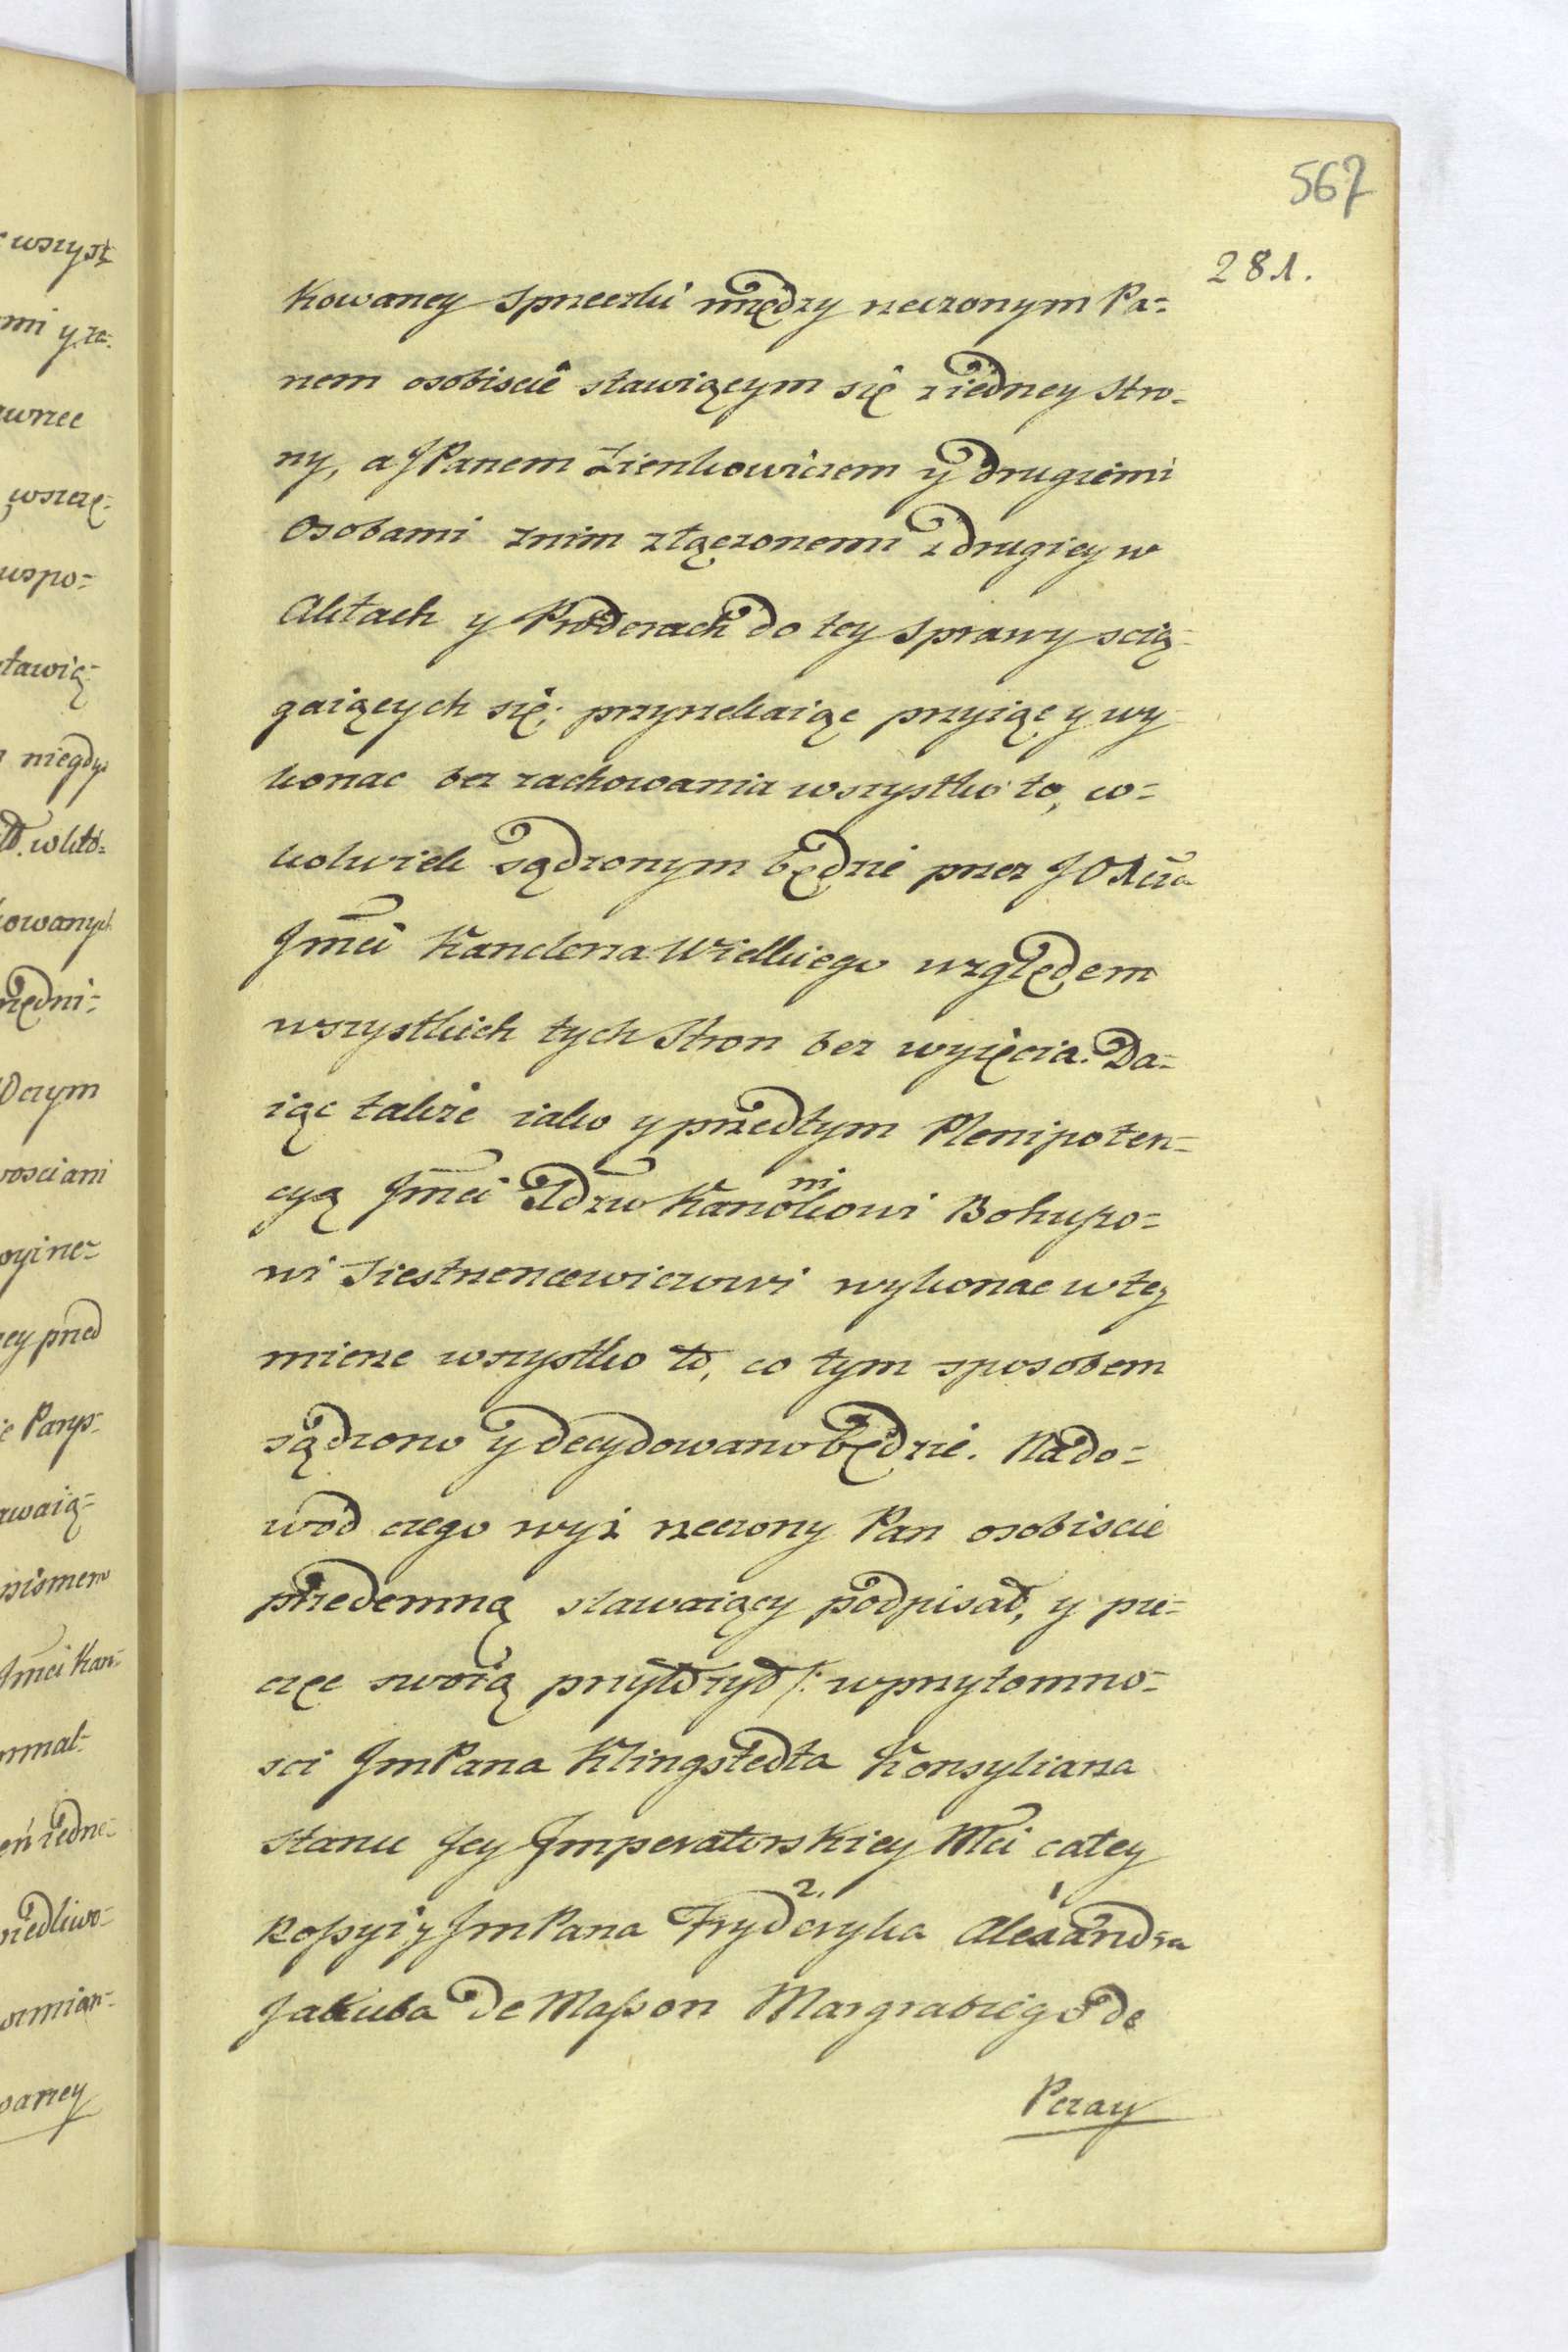 567
281.
kowaney sprzeczki między rzeczonym Pa=
nem osobiscie stawiącym się z iedney stro=
ny, a JPanem Zienkowiczem y drugiemi
Osobami znim złączonemi z drugiey w
Aktach y Proderach do tey sprawy scią=
gaiących się; przyrzekaiąc przyiąc y wy=
konac bez zachowania wszystko to, co=
kolwiek sądzonym będzie przez JO Xcia
Jmci Kanclerza Wielkiego względem
wszystkich tych Stron bez wyięcia. Da=
iąc także iako y przedtym Plenipoten=
cyą Jmci Xdzu Kanonikowi Bohuszo=
wi Siestrzencewiczowi wykonac w tey
mierze wszystko to, co tym sposobem
sądzono y decydowano będzie. Na do=
wod czego wyż rzeczony Pan osobiscie
przedemną stawaiący podpisał, y pie=
częc swoią przyłożył /: w przytomno=
sci JmPana Klingstedta Konsyliarza
stanu Jey Imperatorskiey Mci całey
Rossyi y JmPana Fryderyka 2. Alexandra 1
Jakuba de Masson Margrabiego de
Peray
wszyst=
mi y za=
wnec
wszczę=
wspo=
stawią=
niegdys
któ=
kowanych
rzędni=
Wczym
wosciami
oyine=
ey przed
ie Parys=
waią=
pismem
Jmci Kan=
ormal=
eń iedne=
wiedliwo=
ormian=
oaney